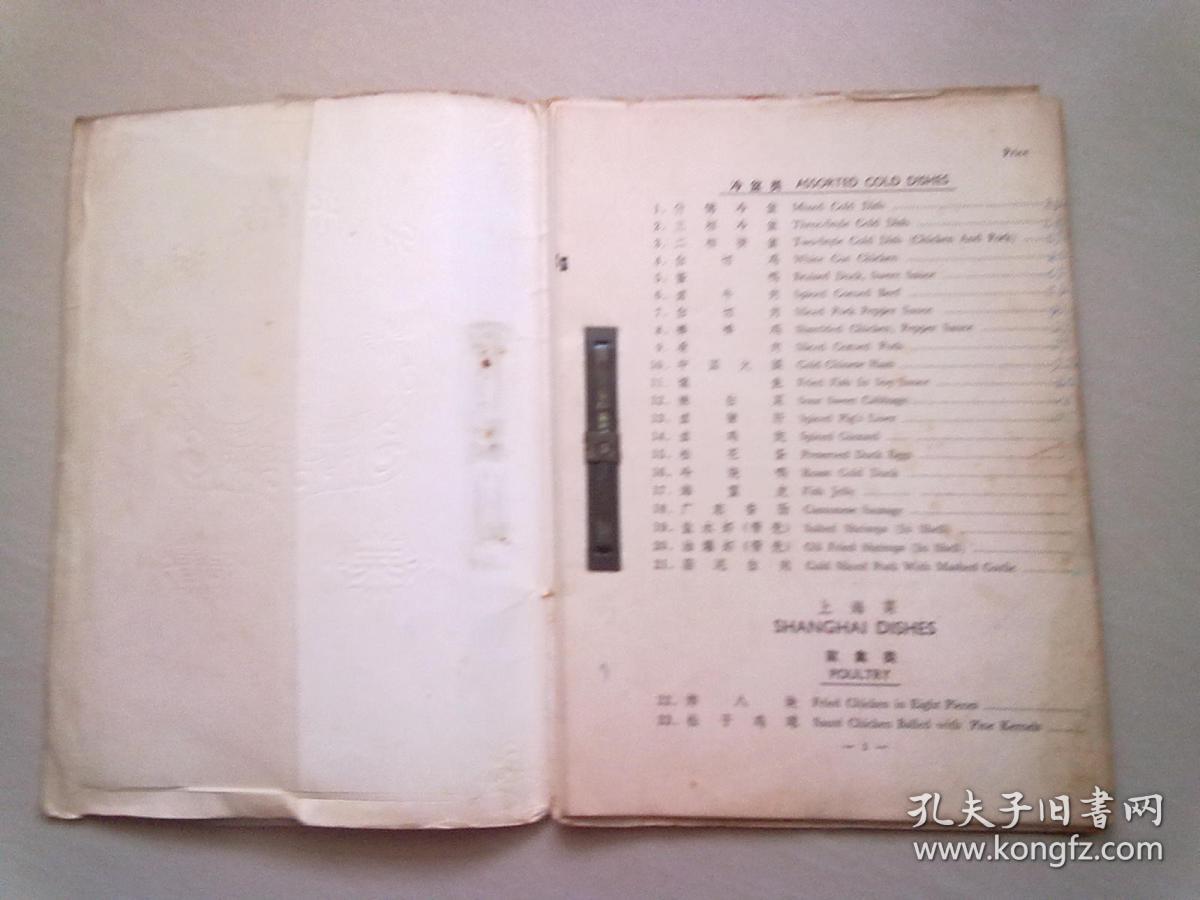 Price
冷盆类 ASSORTED COLD DISHES
1. 什锦冷盆 Mixed Cold Dish
2. 三拼冷盆 Three-Style Cold Dish
3. 二拼拼盆 Two-Style Cold Dish (Chicken And Pork)
4. 白切鸡 White Cut Chicken
5. 酱鸭 Braised Duck, Sweet Sauce
6. 卤牛肉 Spiced Corned Beef
7. 白切肉 Sliced Pork Pepper Sauce
8. 棒棒鸡 Shredded Chicken, Pepper Sauce
9. 肴肉 Sliced Corned Pork
10. 中国火腿 Cold Chinese Ham
11. 鱼 Fried Fish In Soy Sauce
12. 辣白菜 Sour Sweet Cabbage
13. 卤猪肝 Spiced Pig's Liver
14. 卤鸡肫 Spiced Gizzard
15. 松花蛋 Preserved Duck Eggs
16. 冷烧鸭 Roast Cold Duck
17. 海蜇皮 Fish Jelly
18. 广东香肠 Cantonese Sausage
19. 盐水虾(带壳) Salted Shrimps (In Shell)
20. 油爆虾(带壳) Oil Fried Shrimps (In Shell)
21. 蒜泥白肉 Cold Sliced Pork With Mashed Garlic
上海菜
SHANGHAI DISHES
家禽类
POULTRY
22. 炸八块 Fried Chicken in Eight Pieces
23. 松子鸡 Chicken Balled with Pine Kernels
孔夫子旧書网
www.kongfz.com